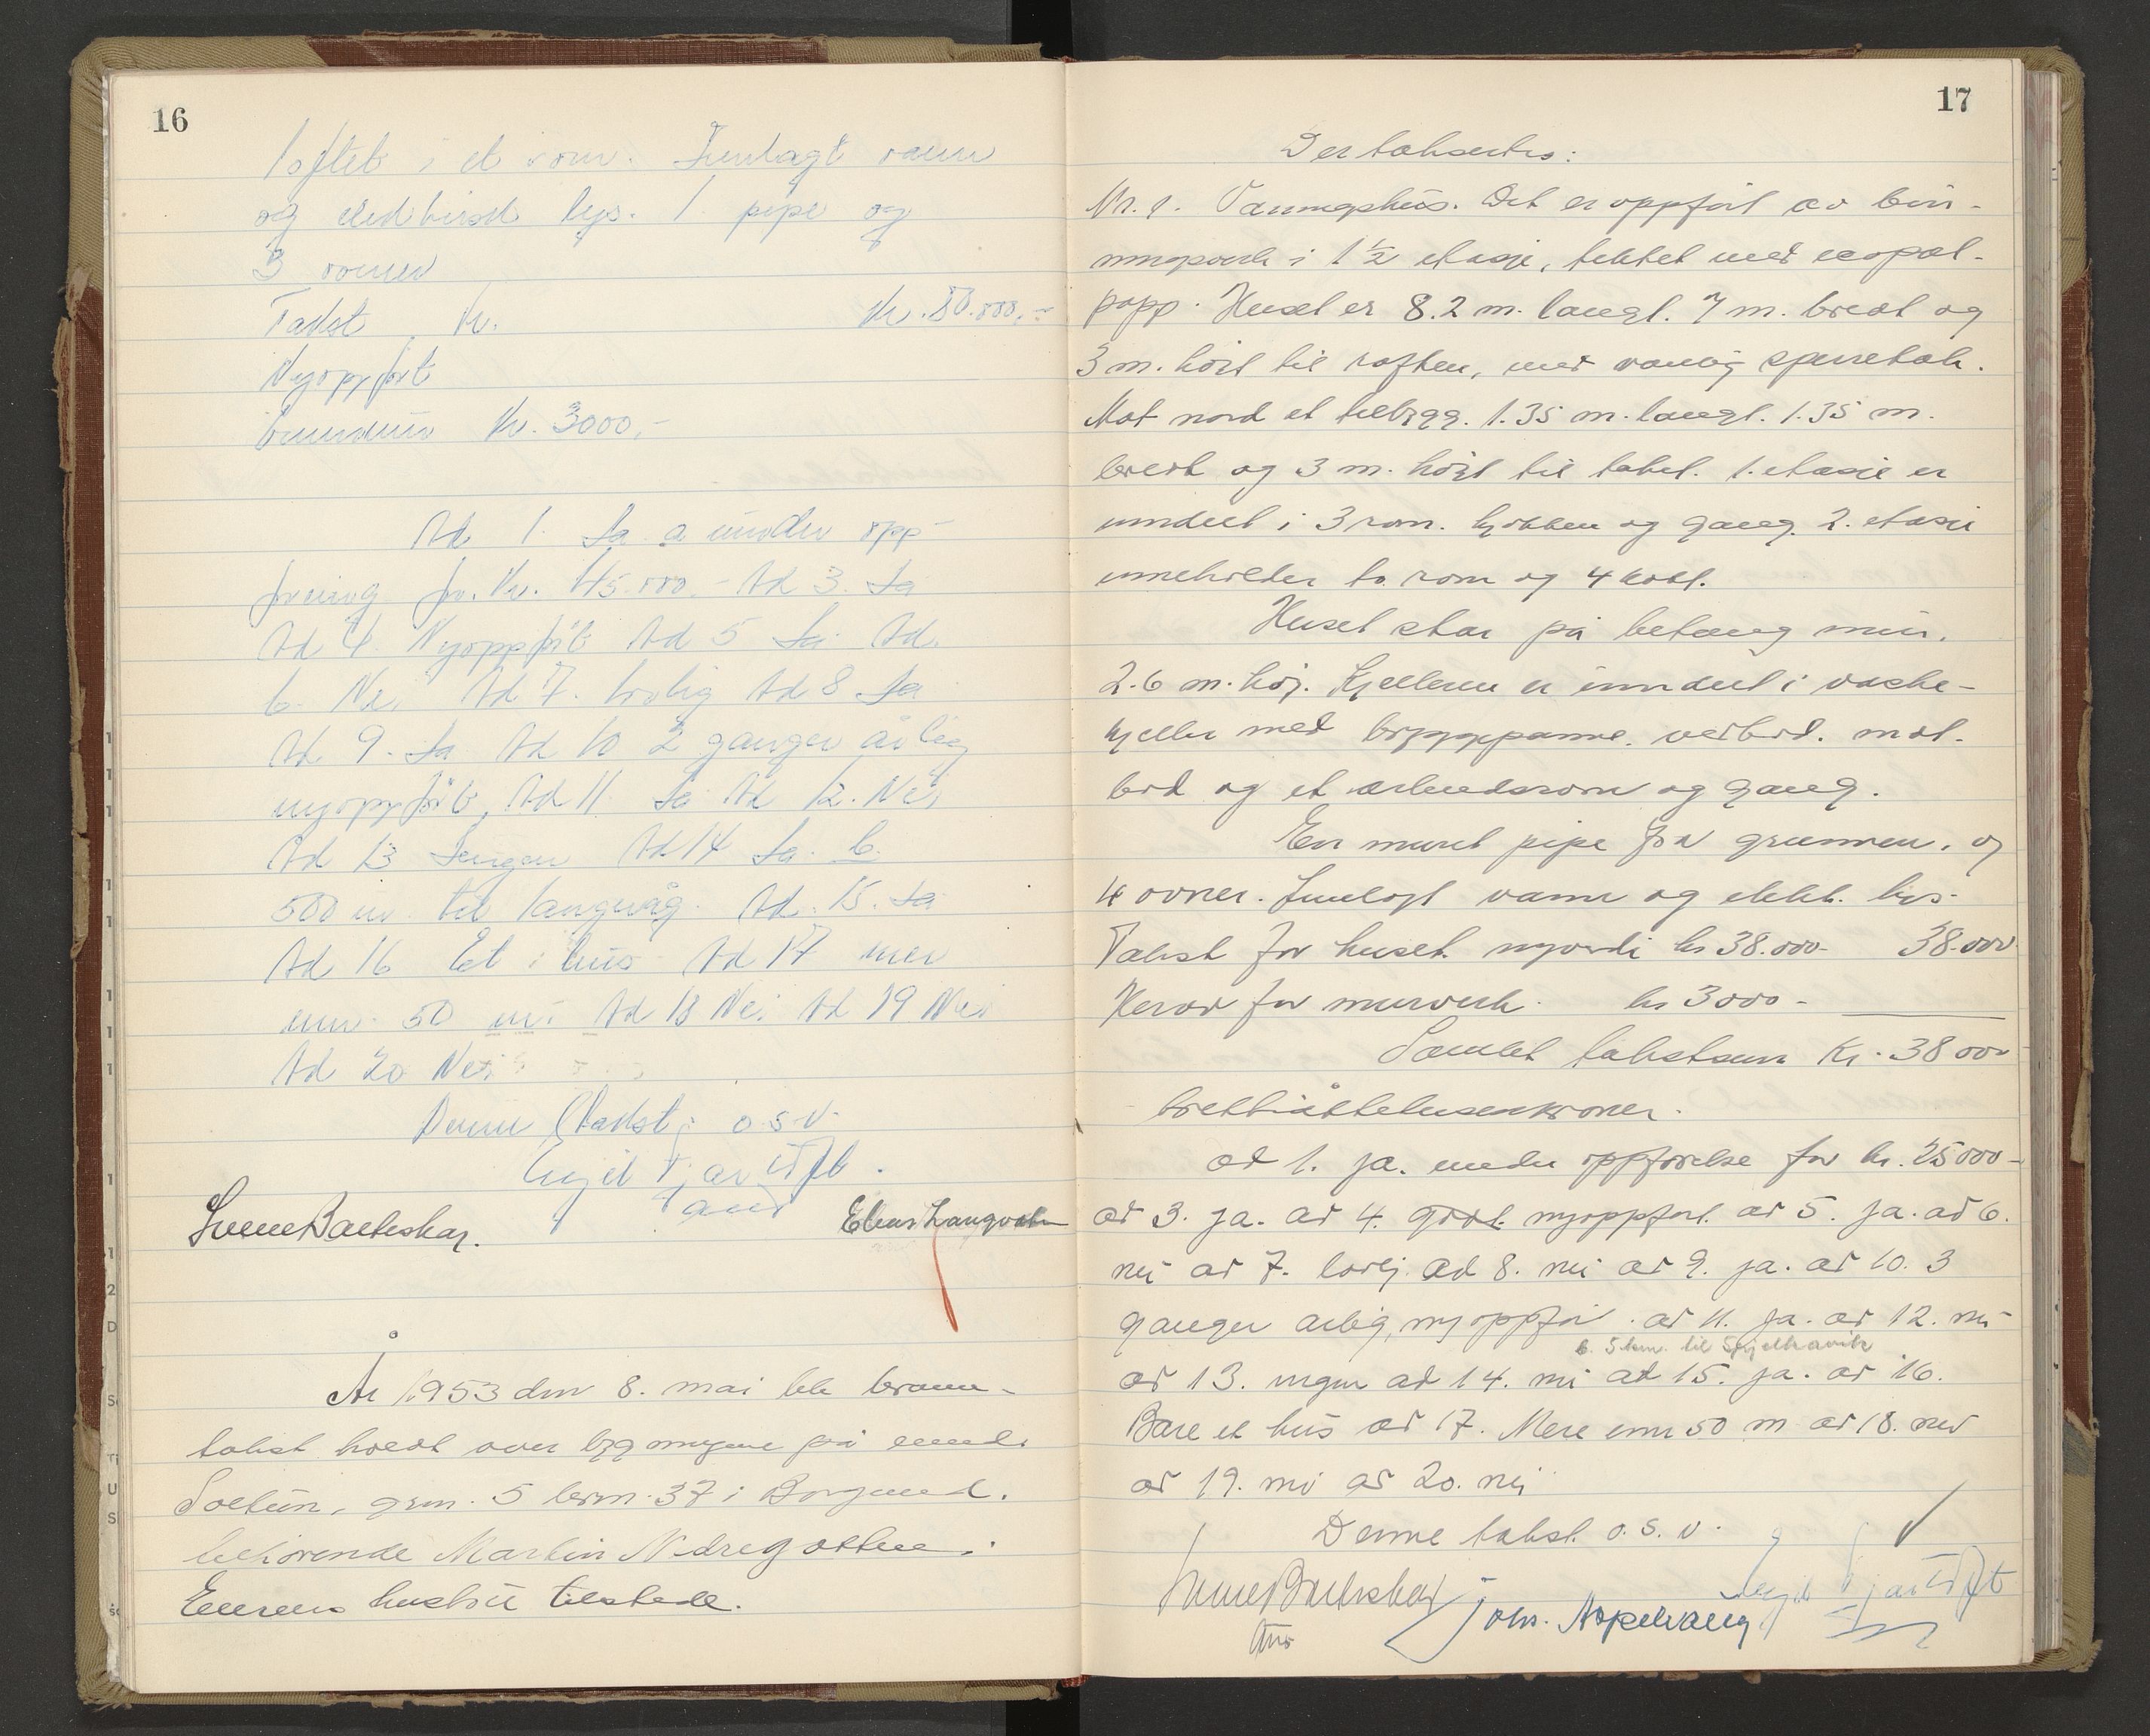 16
loftet i et rom. Innlagt vann
og elektrisk lys. 1 pipe og
3 ovner
Takst Kr. Kr. 80.000,-
Nyoppført
Grunnmur Kr. 3000,-
Ad 1. Ja a under opp-
føring for Kr. 45.000.- Ad 3. Ja
Ad 4. Nyoppført Ad 5 Ja Ad
6. Nei Ad 7. bolig Ad 8 Ja
Ad 9. Ja Ad 10 2 ganger årlig
nyoppført, Ad 11 Ja Ad 12. Nei
Ad 13 Ingen Ad 14 Ja. b.
500 m. til Langevåg. Ad. 15. Ja
Ad 16 Et hus Ad 17 mer
enn 50 m. Ad 18 Nei Ad 19 Nei
Ad 20 Nei
Denne takst o.s.v.
Elias Langvatn
År 1953 den 8. mai ble brann-
takst holdt over bygningene på eiend.
Soltun, grn. 5 brn. 37 i Borgund.
tilhørende Martin Nedregotten.
Eierens hustru tilstede.
17
Der takseres:
Nr. 1. Våningshus. Det er oppført av bin-
ningsverk i 1½ etasje, tekket med
papp. Huset er 8.2 m. langt. 7 m. bredt og
3 m. høit til raften, med vanlig sperretak.
Mot nord et tilbygg. 1.35 m. langt. 1.35 m.
bredt og 3 m. høit til taket. 1. etasje er
inndelt i 3 rom. kjøkken og gang. 2. etasje
inneholder to rom og 4 kott.
Huset står på betong mur.
2.6 m. høj. Kjelleren er inndelt i vaske-
kjeller med bryggepanne. vedbod. mat-
bod og et arbeidsrom og gang.
En muret pipe fra grunnen. og
4 ovner. Innlagt vann og elekt. lys.
Takst for huset. nyverdi kr 38.000- 38.000
Herav for murverk. kr 3000-
Samlet takstsum Kr. 38000
trettiåttetusenkroner.
ad 1. ja. under oppførelse for kr. 25000-
ad 3. ja. ad 4. godt. nyoppført. ad 5. ja. ad 6.
nei ad 7. bolig. ad 8. nei ad 9. ja. ad 10. 3
ganger årlig, nyoppfør. ad 11. ja. ad 12. nei
b. 5 km. til Spjelkavik
ad 13. ingen ad 14. nei ad 15. ja. ad 16.
Bare et hus ad 17. Mere enn 50 m ad 18. nei
ad 19. nei ad 20. nei
Denne takst. o.s.v.
Johs. Aspehaug